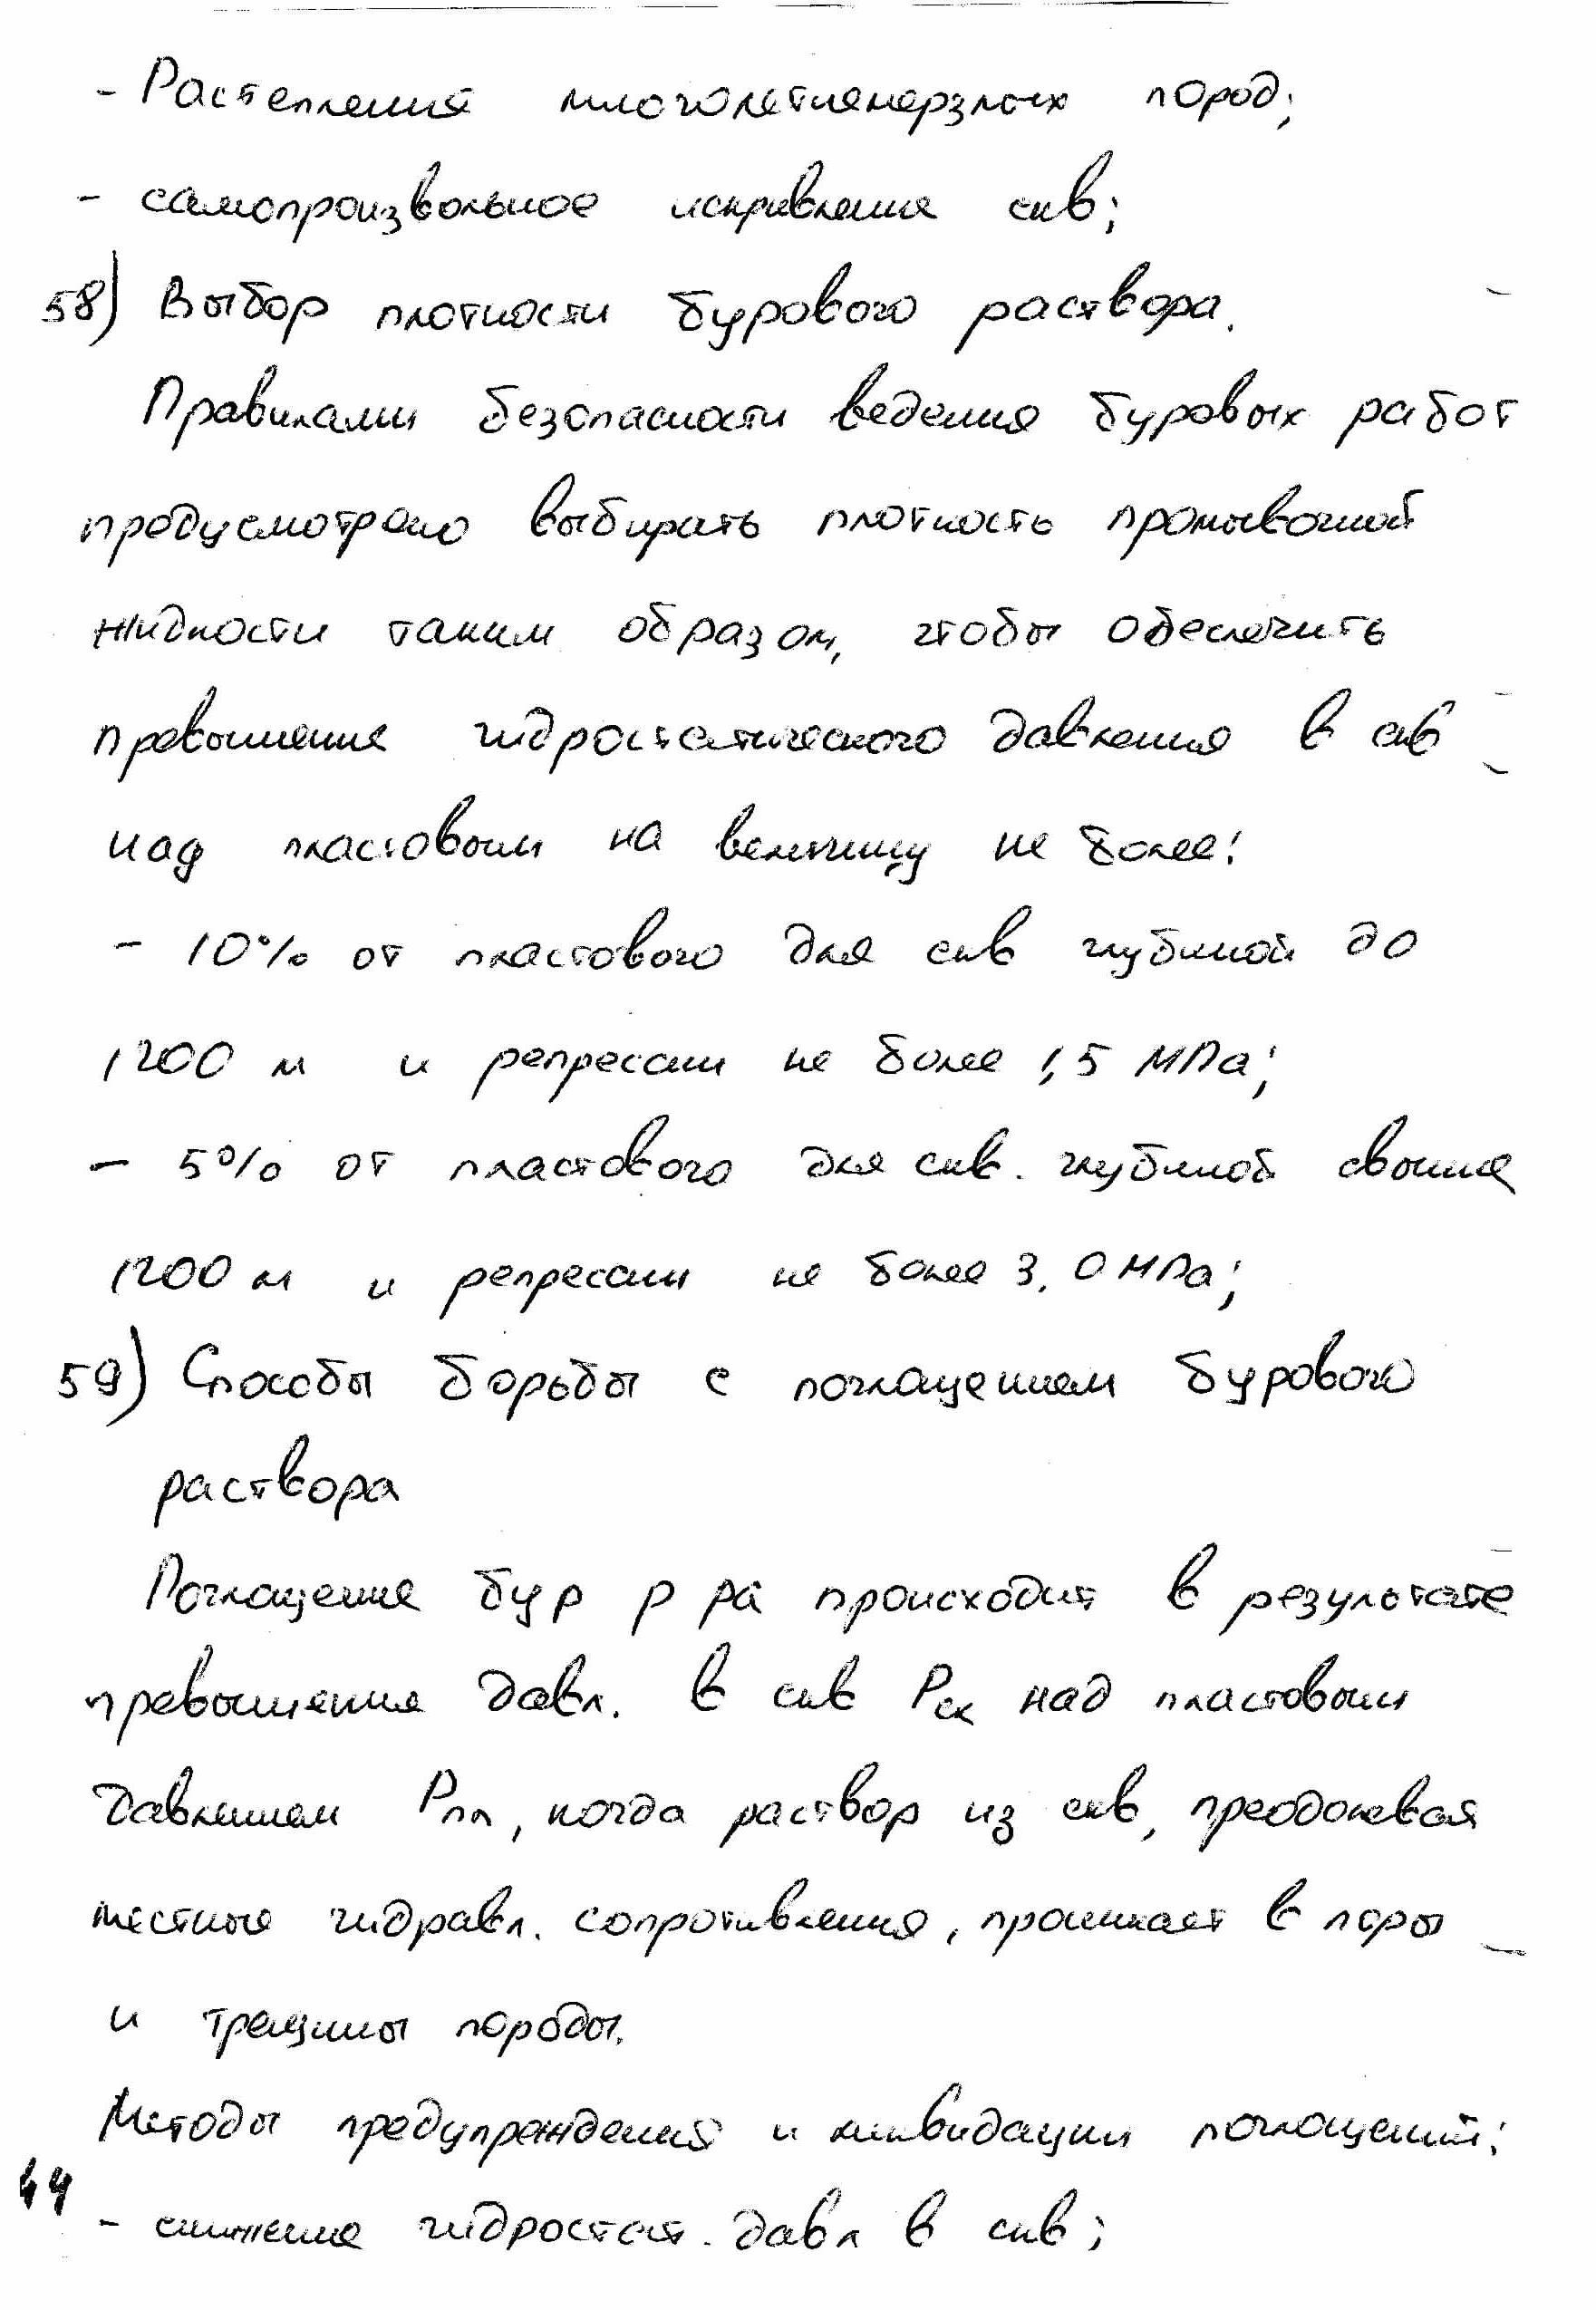 - Растепления многолетнемерзлых пород;
- самопроизвольное искривление скв;
58) Выбор плотности бурового раствора.
Правилами безопасности ведения буровых работ
предусмотрено выбирать плотность промывочной
жидкости таким образом, чтобы обеспечить
превышение гидростатического давления в скв
над пластовым на величину не более:
- 10% от пластового для скв глубиной до
1200 м и репрессии не более 1,5 МПа;
- 5% от пластового для скв. глубиной свыше
1200 м и репрессии не более 3,0 МПа;
59) Способы борьбы с поглощением бурового
раствора
Поглощение бур р ра происходит в результате
превышения давл. в скв Рск над пластовым
давлением Рпл, когда раствор из скв, преодолевая
местные гидравл. сопротивления, проникает в поры
и трещины породы.
Методы предупреждения и ликвидации поглощений:
44
- снижение гидростат. давл в скв;